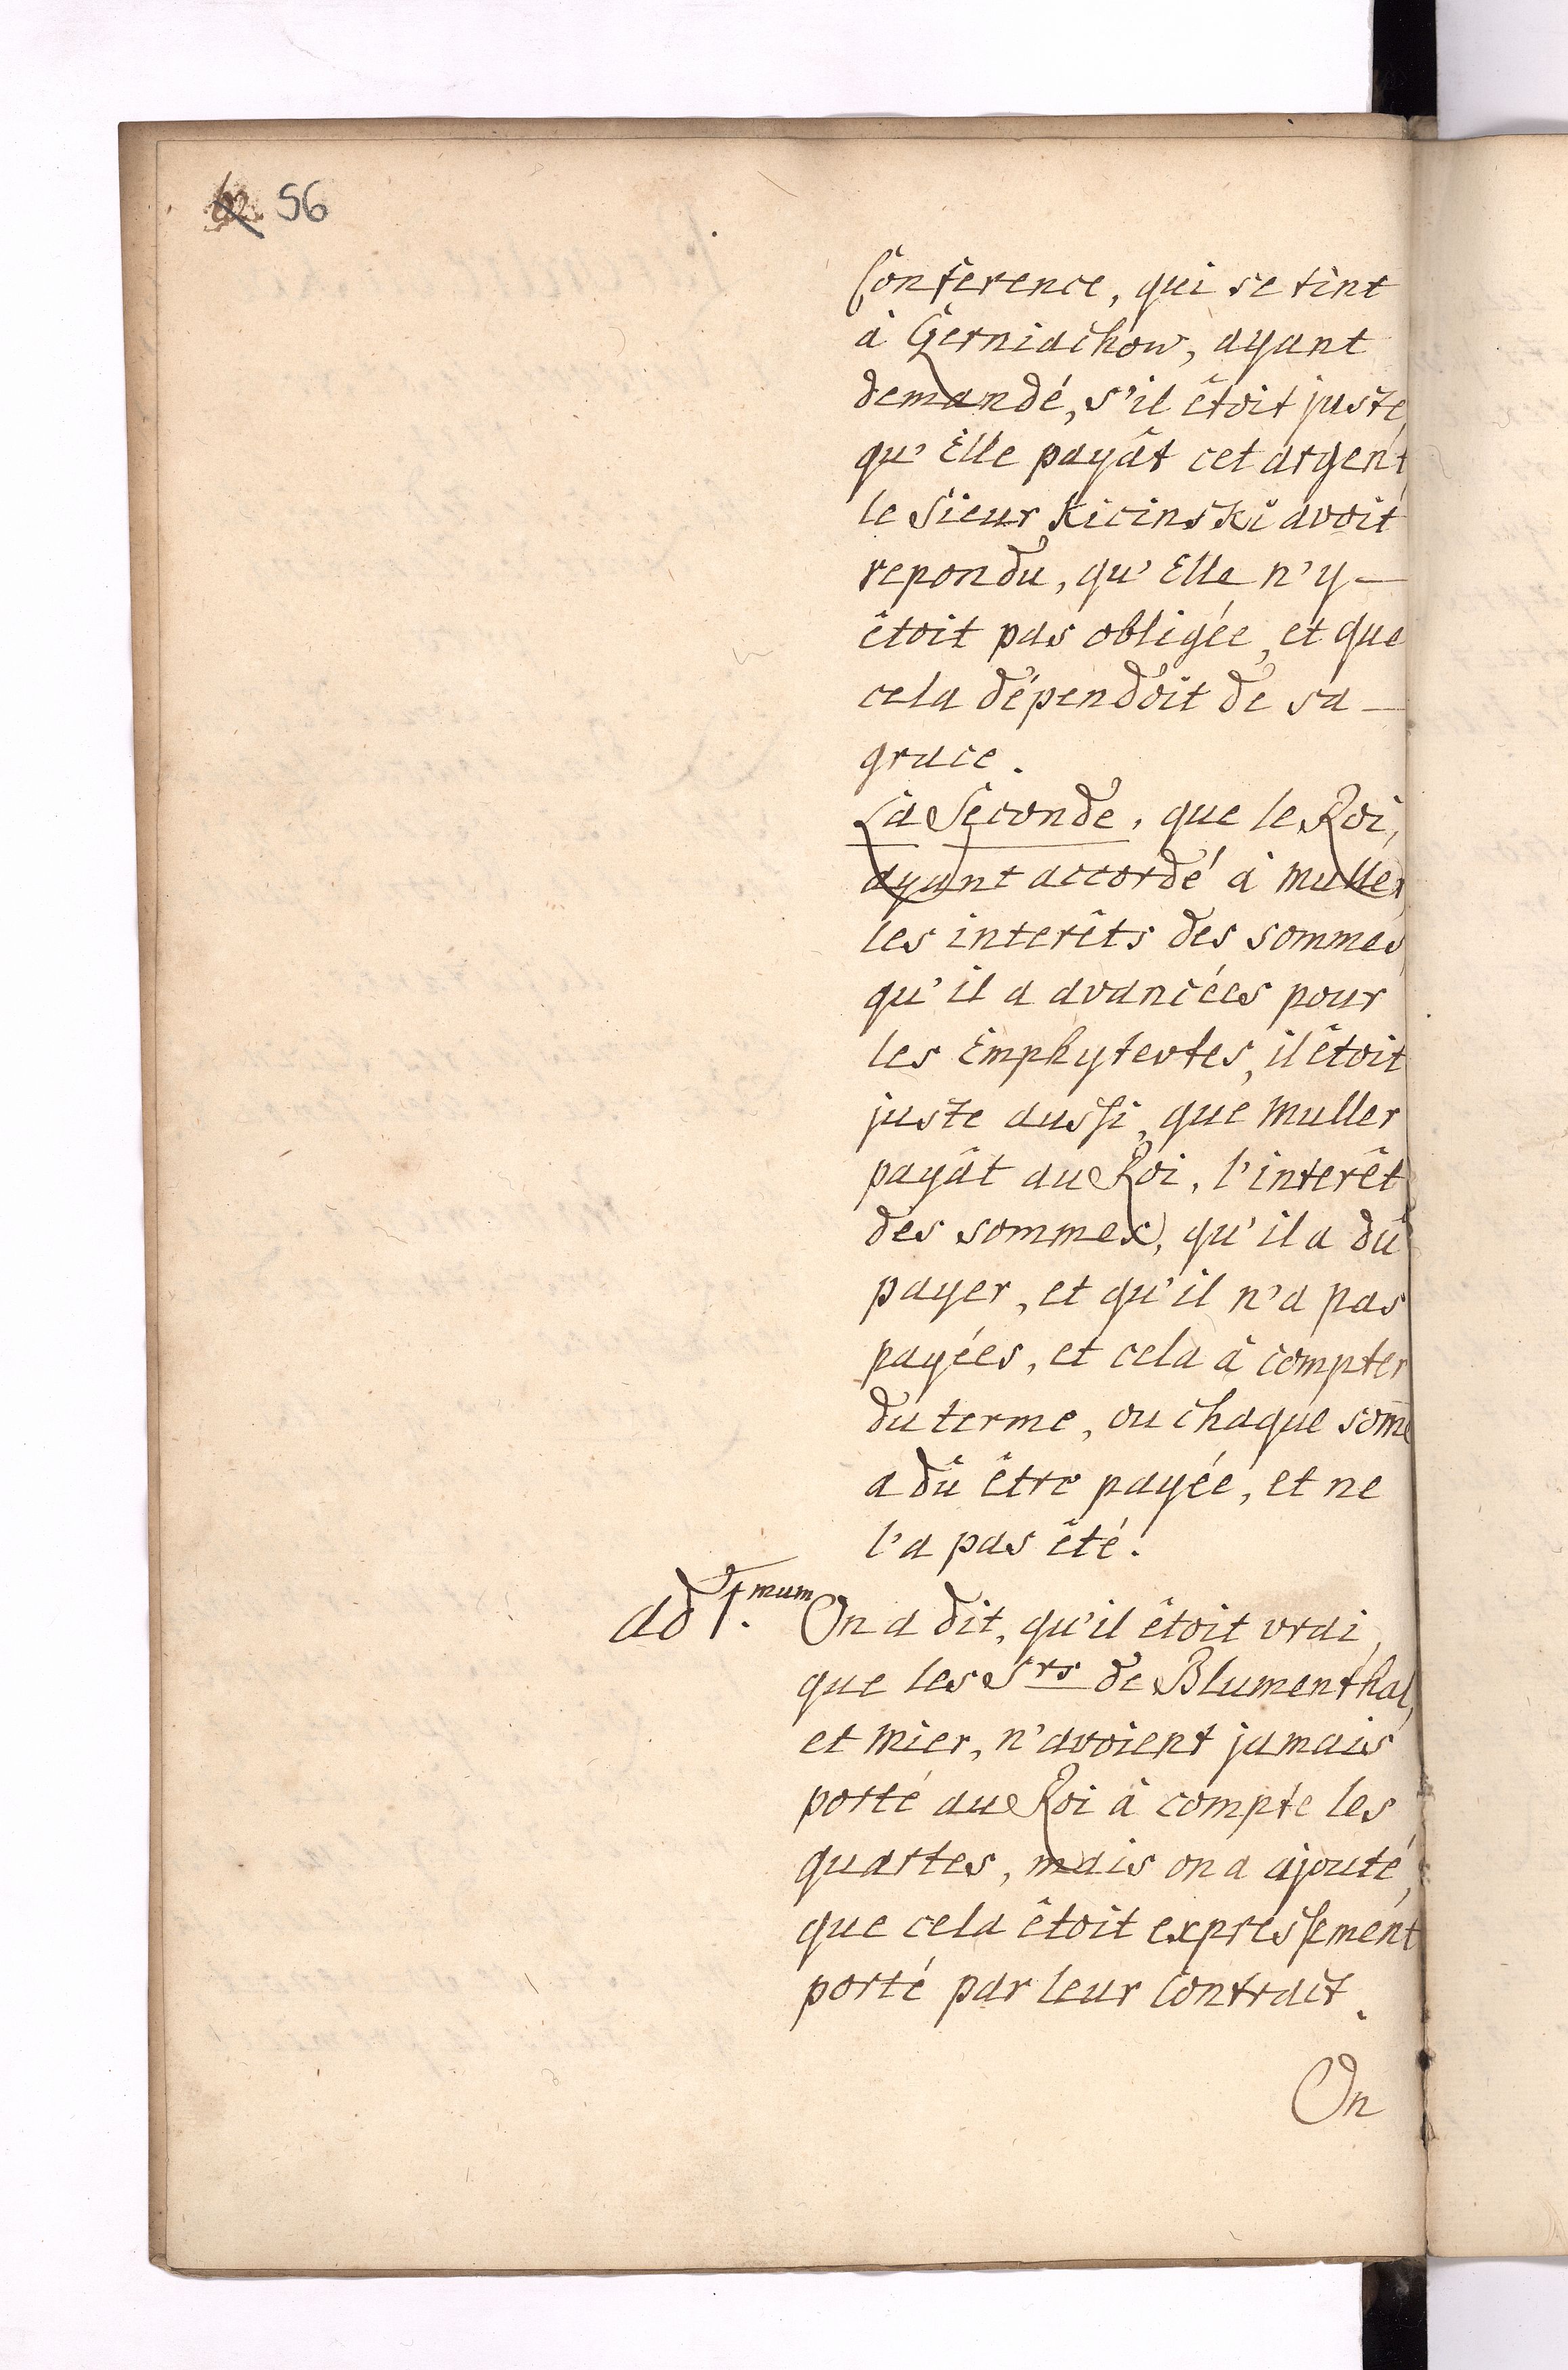 56
Conference, qui se tint
à Czerniachow, ayant
demandé, s'il êtoit juste,
qu'Elle payât cet argent,
le Sieur Kicinski avoit
repondu, qu'Elle n'y —
êtoit pas obligée, et que
cela dépendoit de sa —
grace.
La Seconde, que le Roi,
ayant accordé à Muller,
les interêts des sommes,
qu'il a avancées pour
les Emphyteotes, il êtoit
juste aussi, que Muller
payât au Roi, l'interêt
des sommes, qu'il a dû
payer, et qu'il n'a pas
payées, et cela à compter
du terme, ou chaque som̄e
a dû être payée, et ne
l'a pas êté.
ad 1.mum On a dit, qu'il êtoit vrai,
que les Srs de Blumenthal,
et Mier, n'avoient jamais
porté au Roi à compte les
quartes, mais on a ajouté,
que cela êtoit expressement
porté par leur Contract.
On